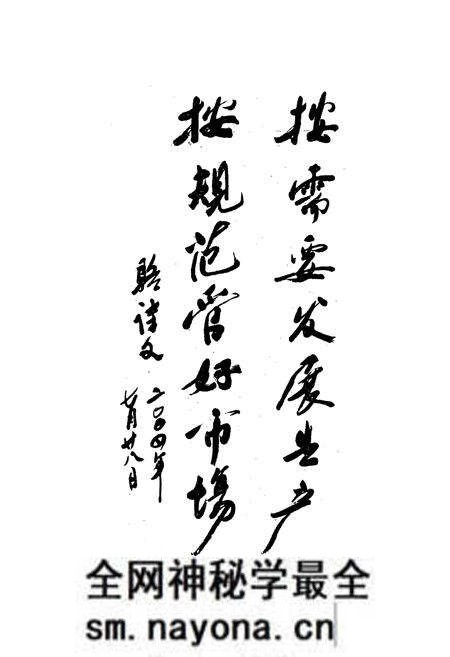 按需要发展生产
按规范管好市場
骆诗文
二〇〇四年
七月廿八日
全网神秘学最全
sm.nayona.cn